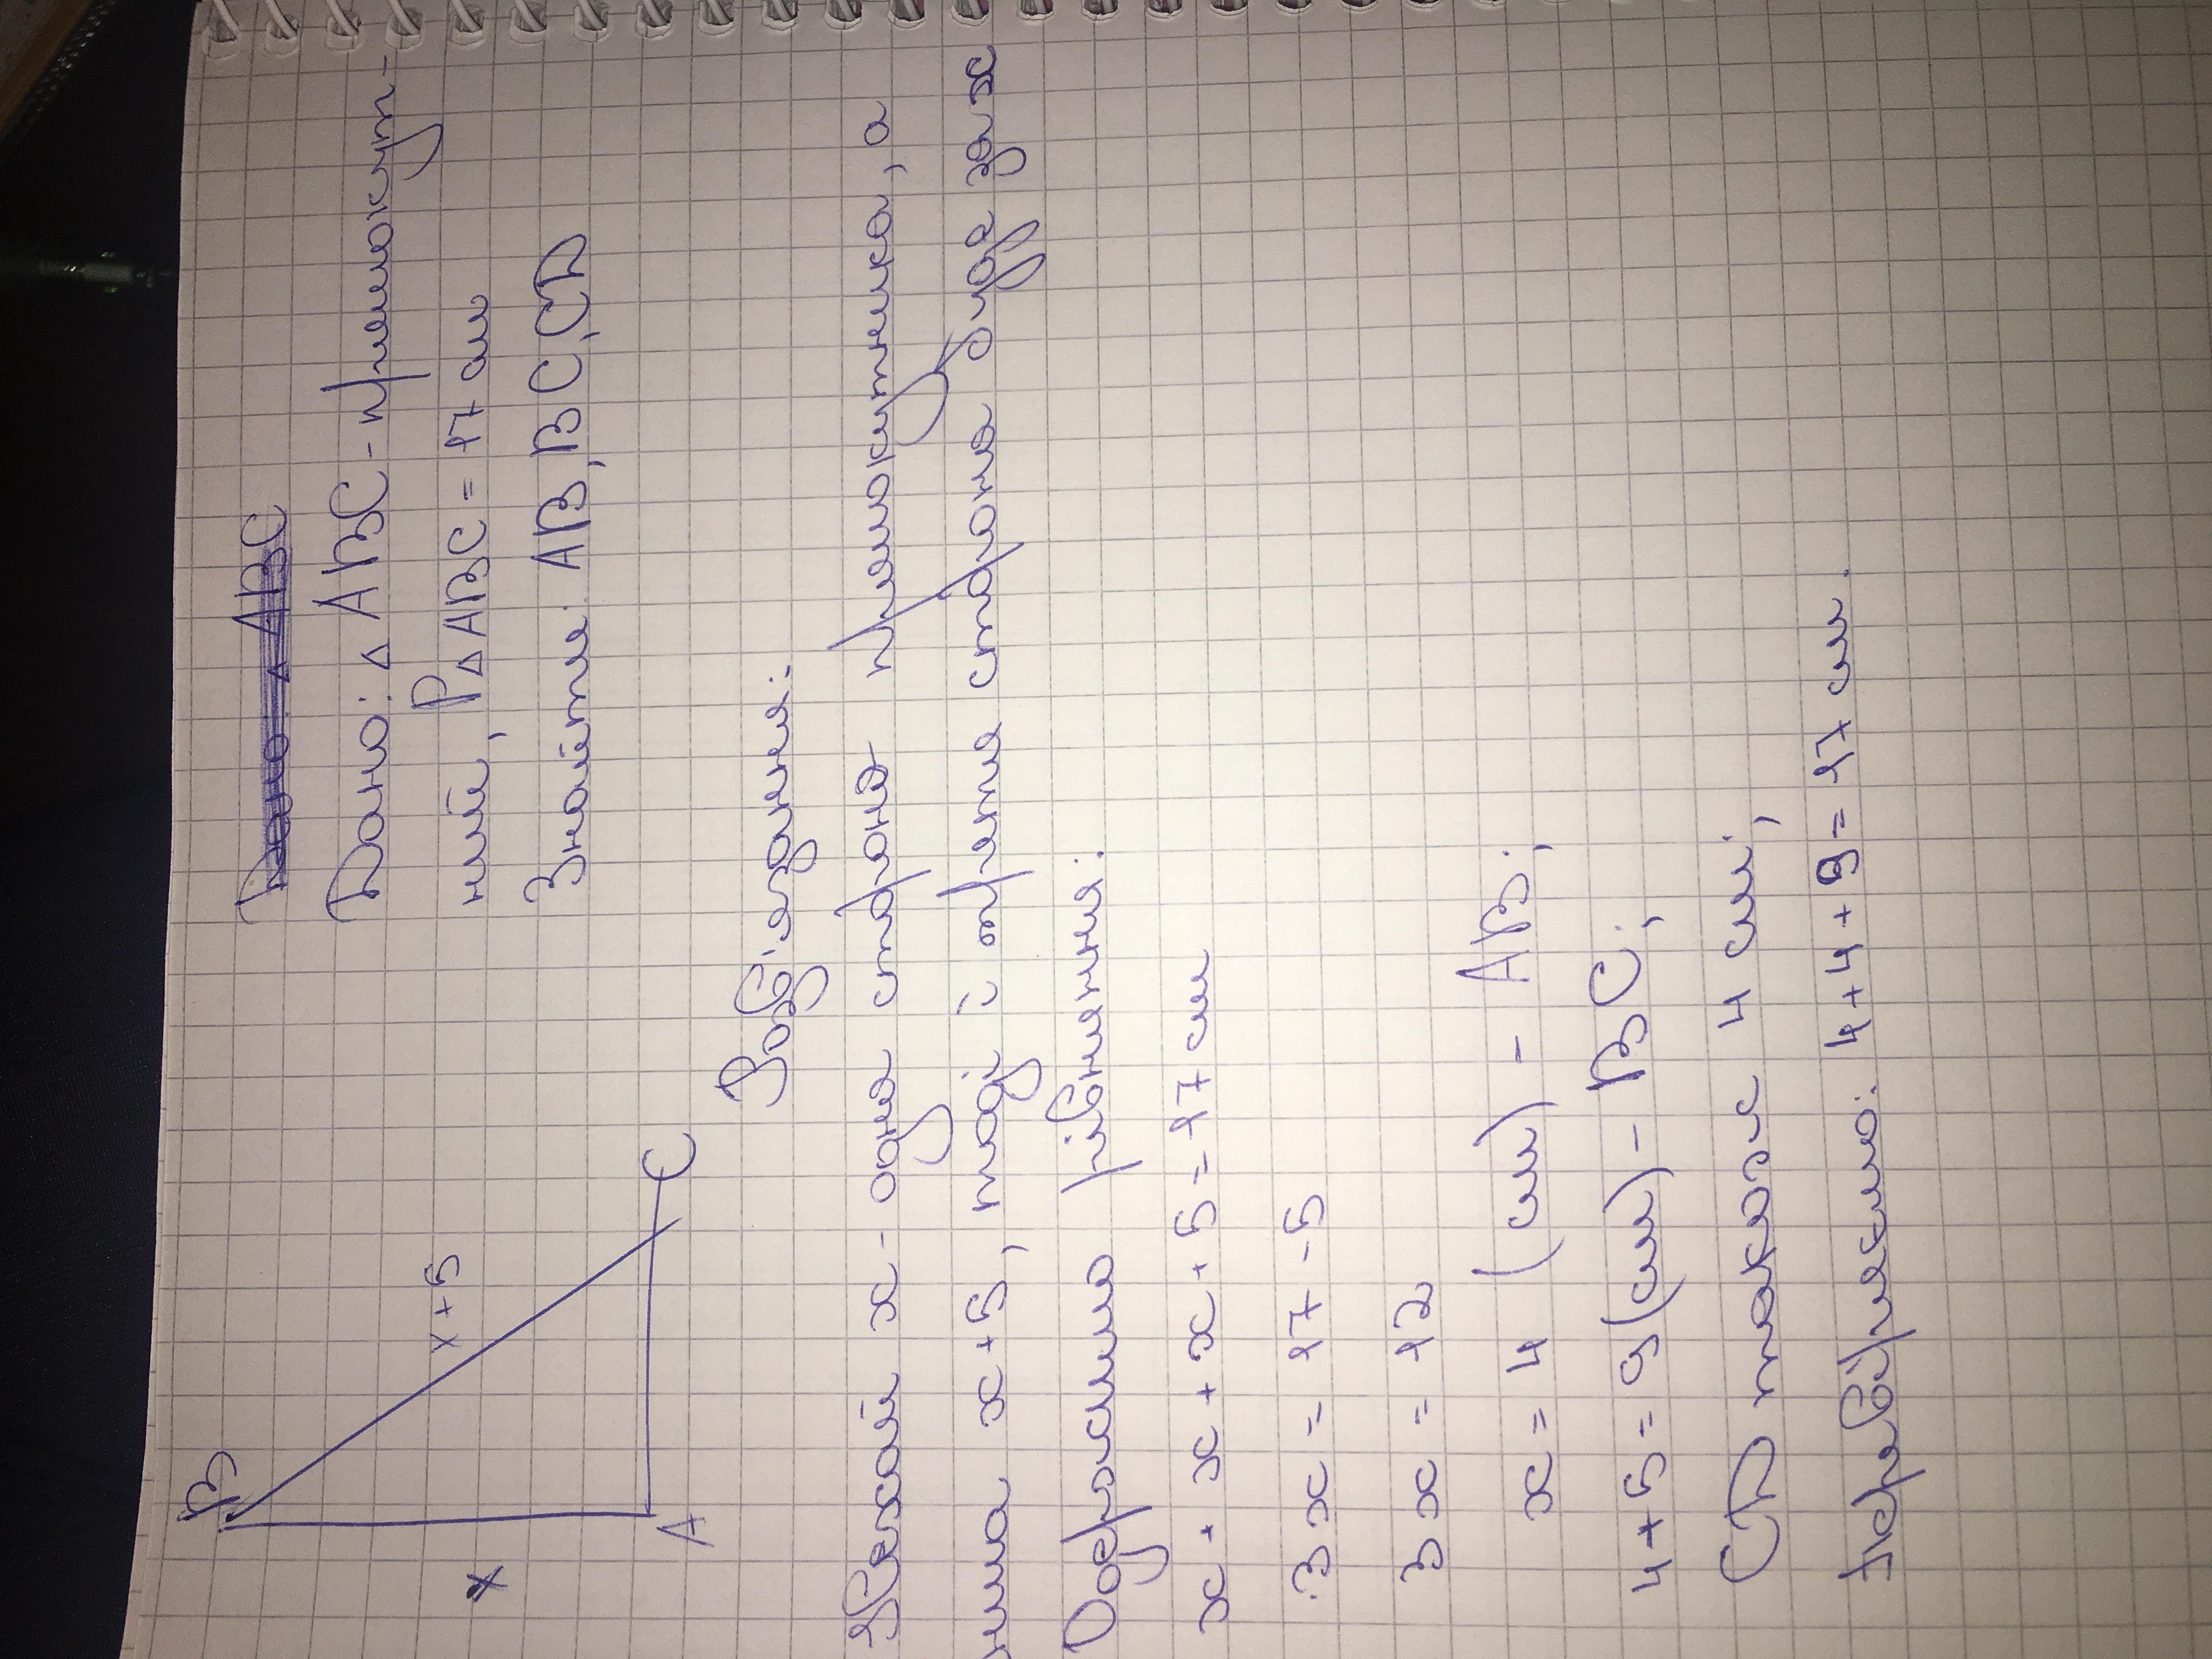 Дано: △ ABC
Дано: △ ABC - прямокут-
ний, P△ABC = 17 см
Знайти: AB, BC, CD
B
x + 5
x
A
C
Розв'язання:
Нехай x - одна сторона прямокутника, а
інша x + 5, тоді і третя сторона буде за x
Одержимо рівняння:
x + x + x + 5 = 17 см
3x = 17 - 5
3x = 12
x = 4 (см) - AB;
4 + 5 = 9 (см) - BC;
CD також 4 см;
Перевіримо: 4 + 4 + 9 = 17 см.